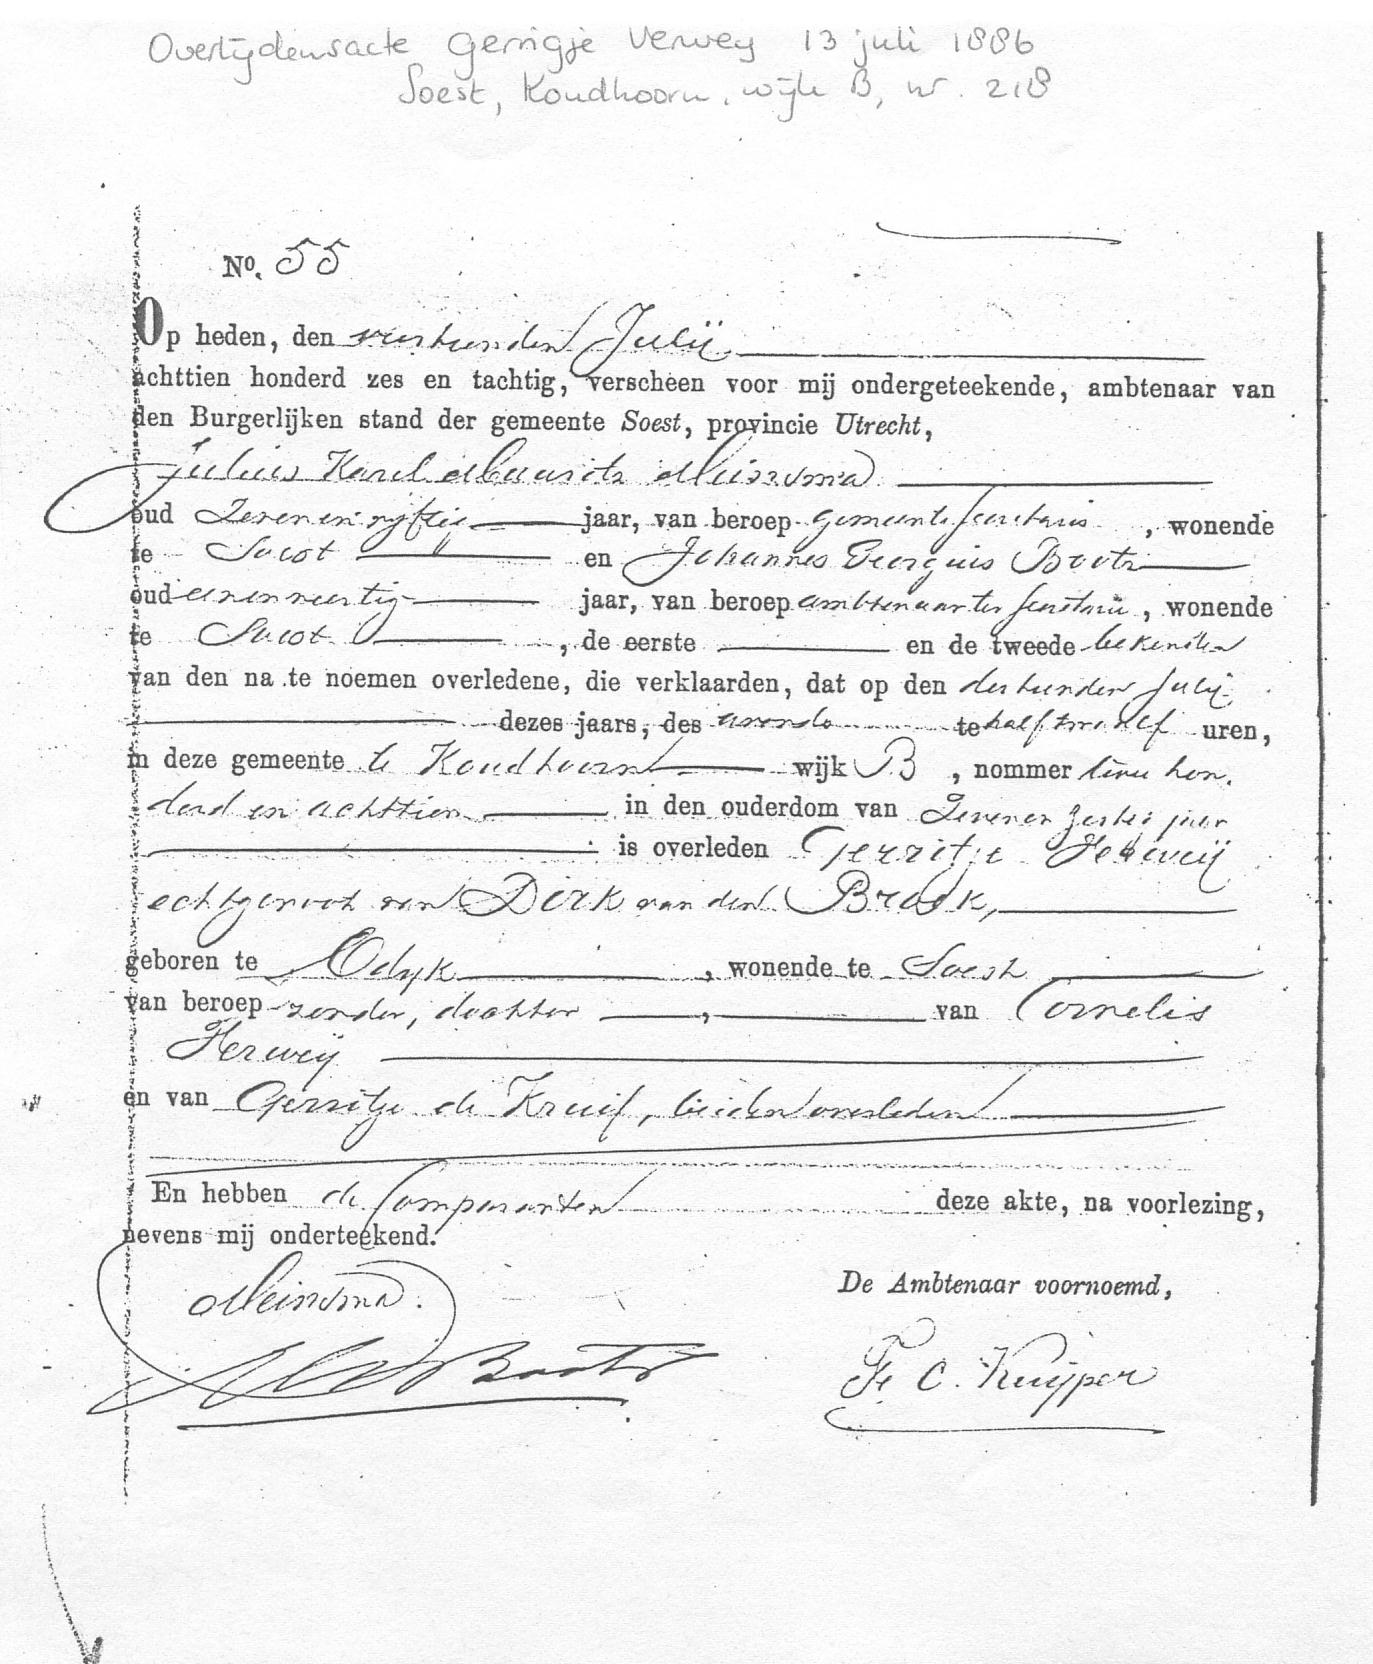 Overlijdensacte Gerrigje Verwey 13 juli 1886
Soest, Koudhoorn, wijk B, nr. 218
No. 55
Op heden, den veertienden Julij
achttien honderd zes en tachtig, verscheen voor mij ondergeteekende, ambtenaar van
den Burgerlijken stand der gemeente Soest, provincie Utrecht,
Julius Karel Maurits Meinsma
oud Zevenenvijftig jaar, van beroep gemeente secretaris, wonende
te Soest en Johannes Georgius Boots
oud eenenveertig jaar, van beroep ambtenaar ter secretarie, wonende
te Soest, de eerste en de tweede bekenden
van den na te noemen overledene, die verklaarden, dat op den dertienden Julij
dezes jaars, des avonds te half twaalf uren,
in deze gemeente te Koudhoorn wijk B, nommer twee hon.
derd en achttien in den ouderdom van Zeven en zestig jaar
is overleden Gerritje Herweij
echtgenoot van Dirk van den Broek,
geboren te Odijk, wonende te Soest
van beroep zonder, dochter, van Cornelis
Herweij
en van Gerritje de Kruif, beiden overleden
En hebben de Comparanten deze akte, na voorlezing,
nevens mij onderteekend.
De Ambtenaar voornoemd,
Meinsma.
Boots
F. C. Kuijper